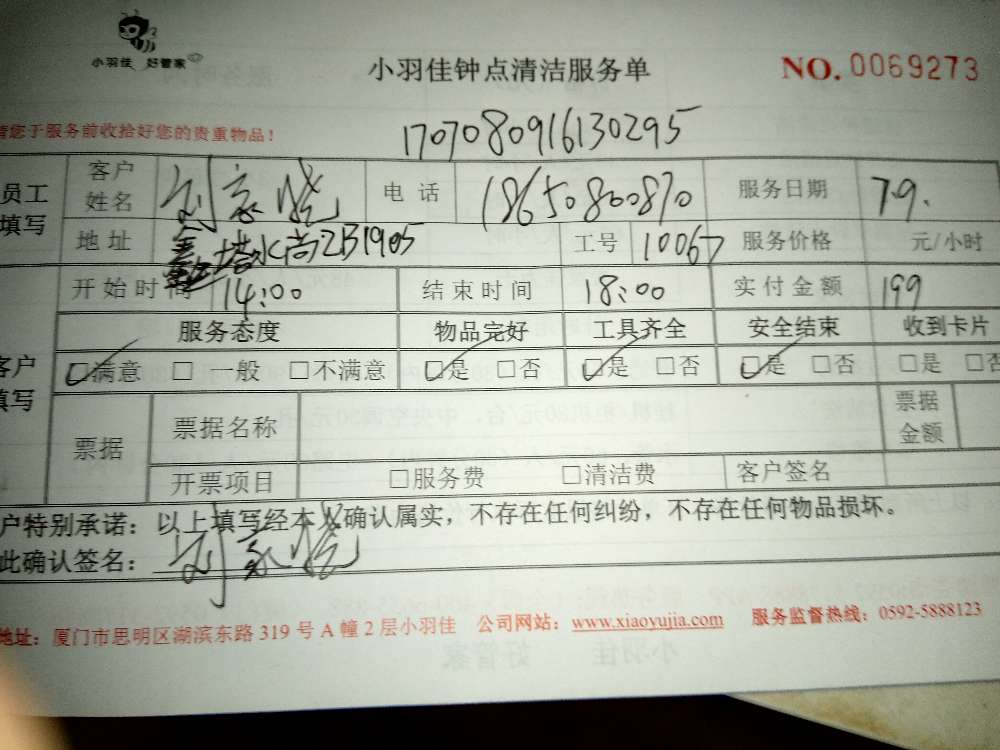 小羽佳 好管家
小羽佳钟点清洁服务单
NO.0069273
请您于服务前收拾好您的贵重物品！
170708091613029​5
员工填写 客户姓名 刘家晓 电话 18650800870 服务日期 7.9.
地址 水尚2B1905 工号 10067 服务价格 元/小时
开始时间 14:00 结束时间 18:00 实付金额 199
客户填写 服务态度 物品完好 工具齐全 安全结束 收到卡片
☑满意 □一般 □不满意 ☑是 □否 ☑是 □否 ☑是 □否 □是 □否
票据 票据名称 票据金额
开票项目 □服务费 □清洁费 客户签名
户特别承诺：以上填写经本人确认属实，不存在任何纠纷，不存在任何物品损坏。
此确认签名： 刘家晓
地址：厦门市思明区湖滨东路 319 号 A 幢 2 层小羽佳 公司网站：www.xiaoyujia.com 服务监督热线：0592-5888123